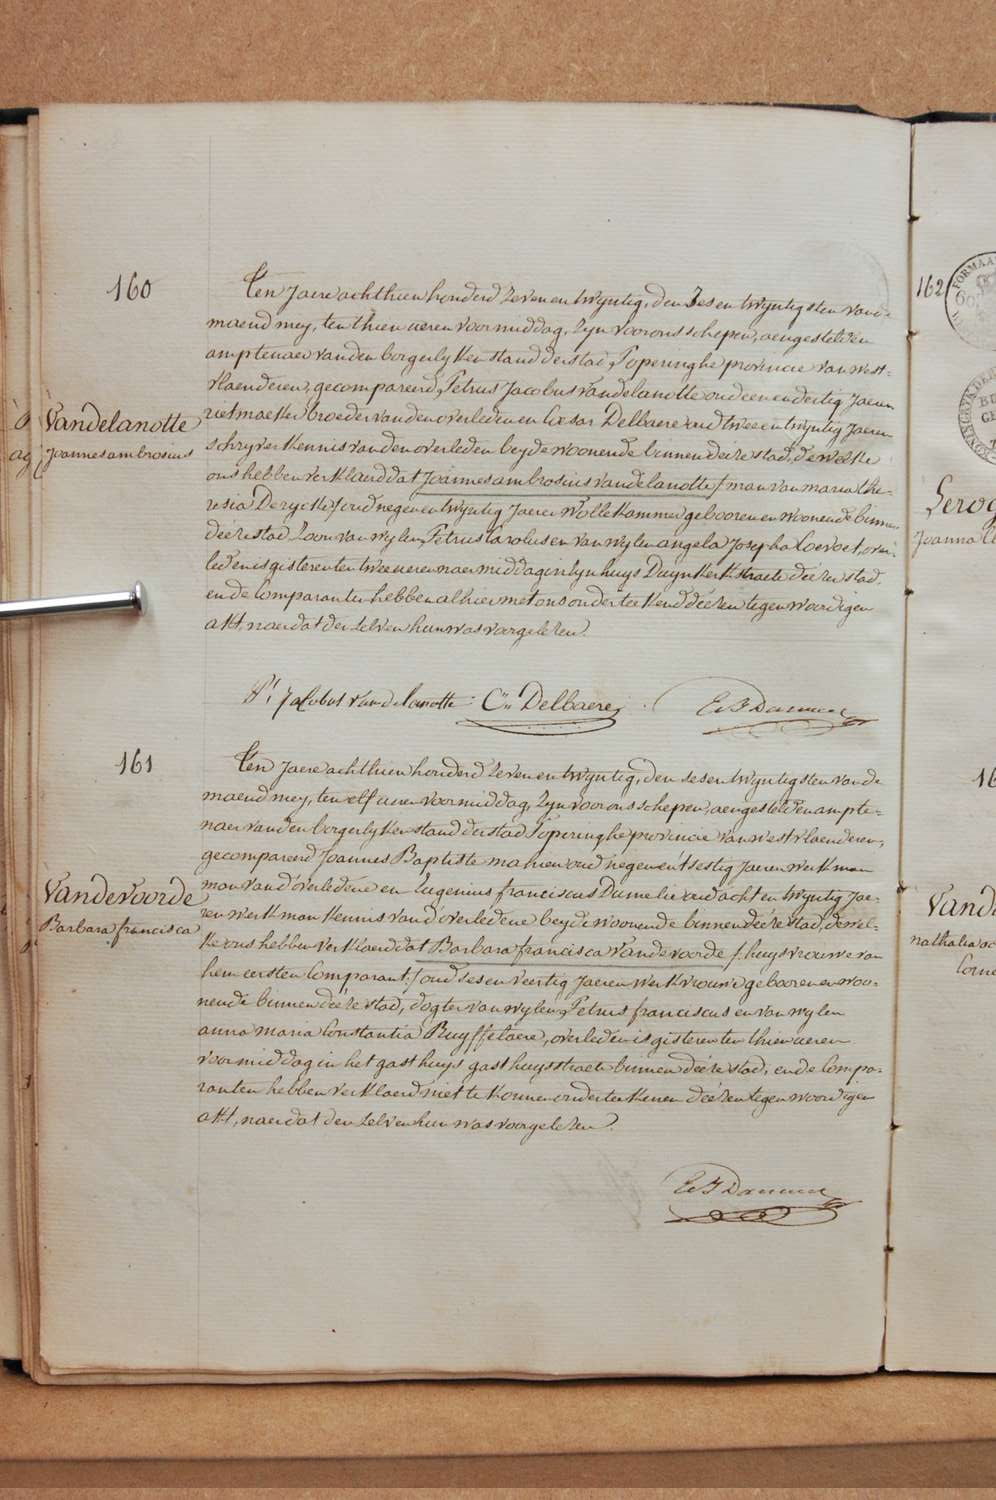 160
Ten Jaere achthien honderd zeven en twijntig, den zes en twijntigsten van de
maend mey, ten thien ueren voormiddag, zijn voor ons schepen, aengestelden
amptenaer van den borgerlyken stand der stad Poperinghe provincie van West=
vlaenderen, gecompareerd, Petrus Jacobus Vandelanotte oud een en dertig Jaeren
rietmaeker broeder van den overleden en Cæsar Delbaere oud twee en twijntig Jaeren
schryver kennis van den overleden beyde woonende binnen deéze stad, de welke
ons hebben verklaerd dat Joannes ambrosius vandelanotte / man van maria the=
resia Derycke / oud negen en twijntig Jaeren Wollekammer gebooren en woonende binnen
deéze stad Zoon van wylen Petrus Carolus en van wylen angela Josepha Coevoet, over=
leden is gisteren ten twee ueren naermiddag in zyn huys Duynkerkstraete deéze stad,
en de Comparanten hebben alhier met ons onderteekend deézen tegenwoordigen
akt, naer dat der zelven hun was voorgelezen.
Vandelanotte
Joannes ambrosius
Pr Jacobus Vandelanotte
Cr Delbaere
161
Ten Jaere achthien honderd zeven en twijntig, den ses en twijntigsten van de
maend mey, ten elf ueren voormiddag, zyn voor ons schepen, aengestelden ampte=
naer van den borgerlyken stand der stad Poperinghe provincie van westvlaenderen,
gecompareerd Joannes Baptiste mahieu oud negen en tsestig Jaeren werkman
man van d'overledene en Eugenius franciscus Dumelie oud acht en twijntig Jae=
ren werkman kennis van d'overledene beyde woonende binnen deéze stad, de wel=
ke ons hebben verklaerd dat Barbara francisca Vandevoorde / huysvrouwe van
hem eersten Comparant / oud ses en veertig Jaeren werkvrouwe gebooren en woo=
nende binnen deéze stad, dogter van wylen Petrus franciscus en van wylen
anna maria Constantia Ruyffelaere, overleden is gisteren ten thien ueren
voormiddag in het gasthuys gasthuysstraete binnen deéze stad, en de Compa=
ranten hebben verklaerd niet te konnen onderteekenen deézen tegenwoordigen
akt, naer dat den zelven hun was voorgelezen.
Vandevoorde
Barbara francisca
162
Joanna
nathalia
Corne